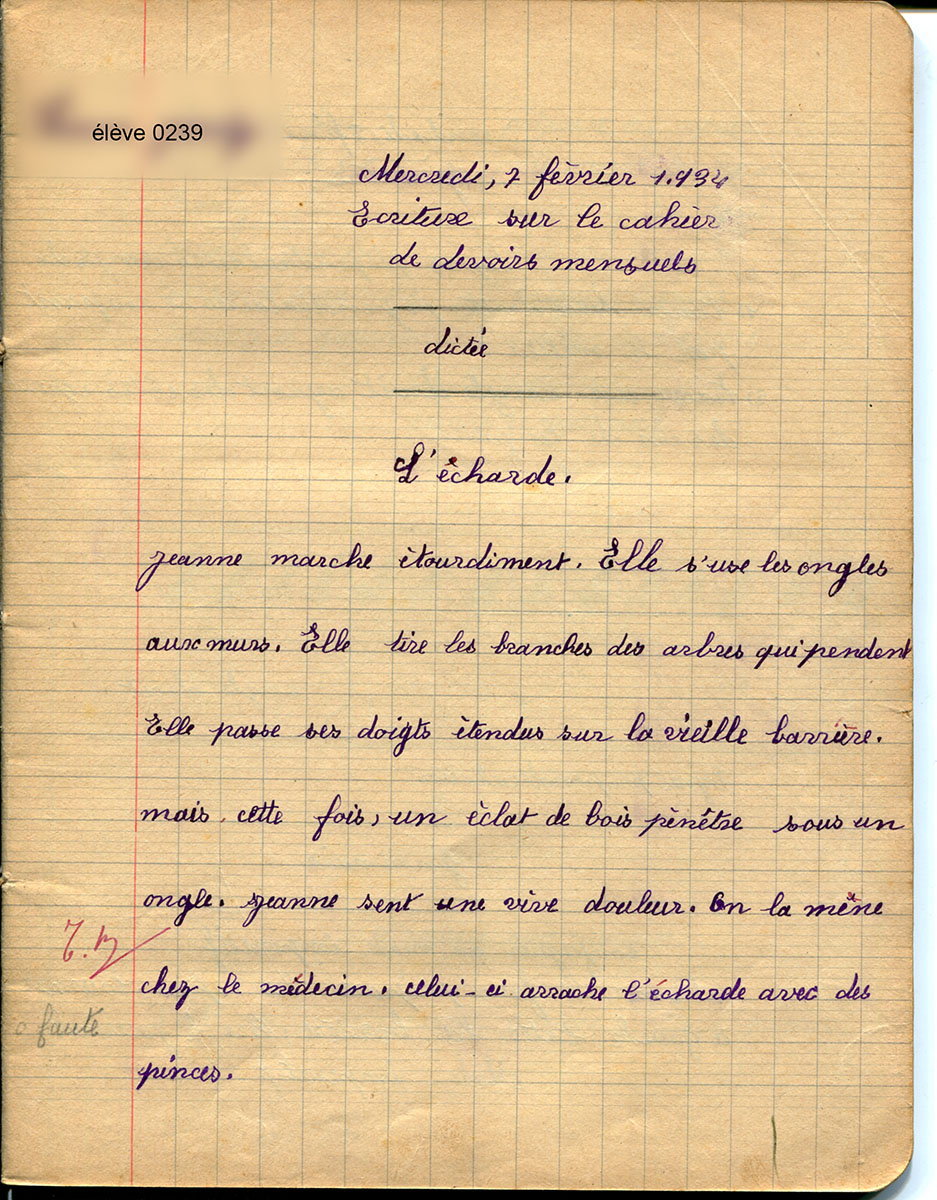 élève 0239
Mercredi, 7 février 1.934
Ecriture sur le cahier
de devoirs mensuels
dictée
L'écharde.
jeanne marche étourdiment. Elle s'use les ongles
aux murs. Elle tire les branches des arbres qui pendent
Elle passe ses doigts étendus sur la vieille barrière.
mais cette fois, un éclat de bois pénètre sous un
ongle. jeanne sent une vive douleur. On la mène
T.B
chez le médecin. celui-ci arrache l'écharde avec des
0 faute
pinces.